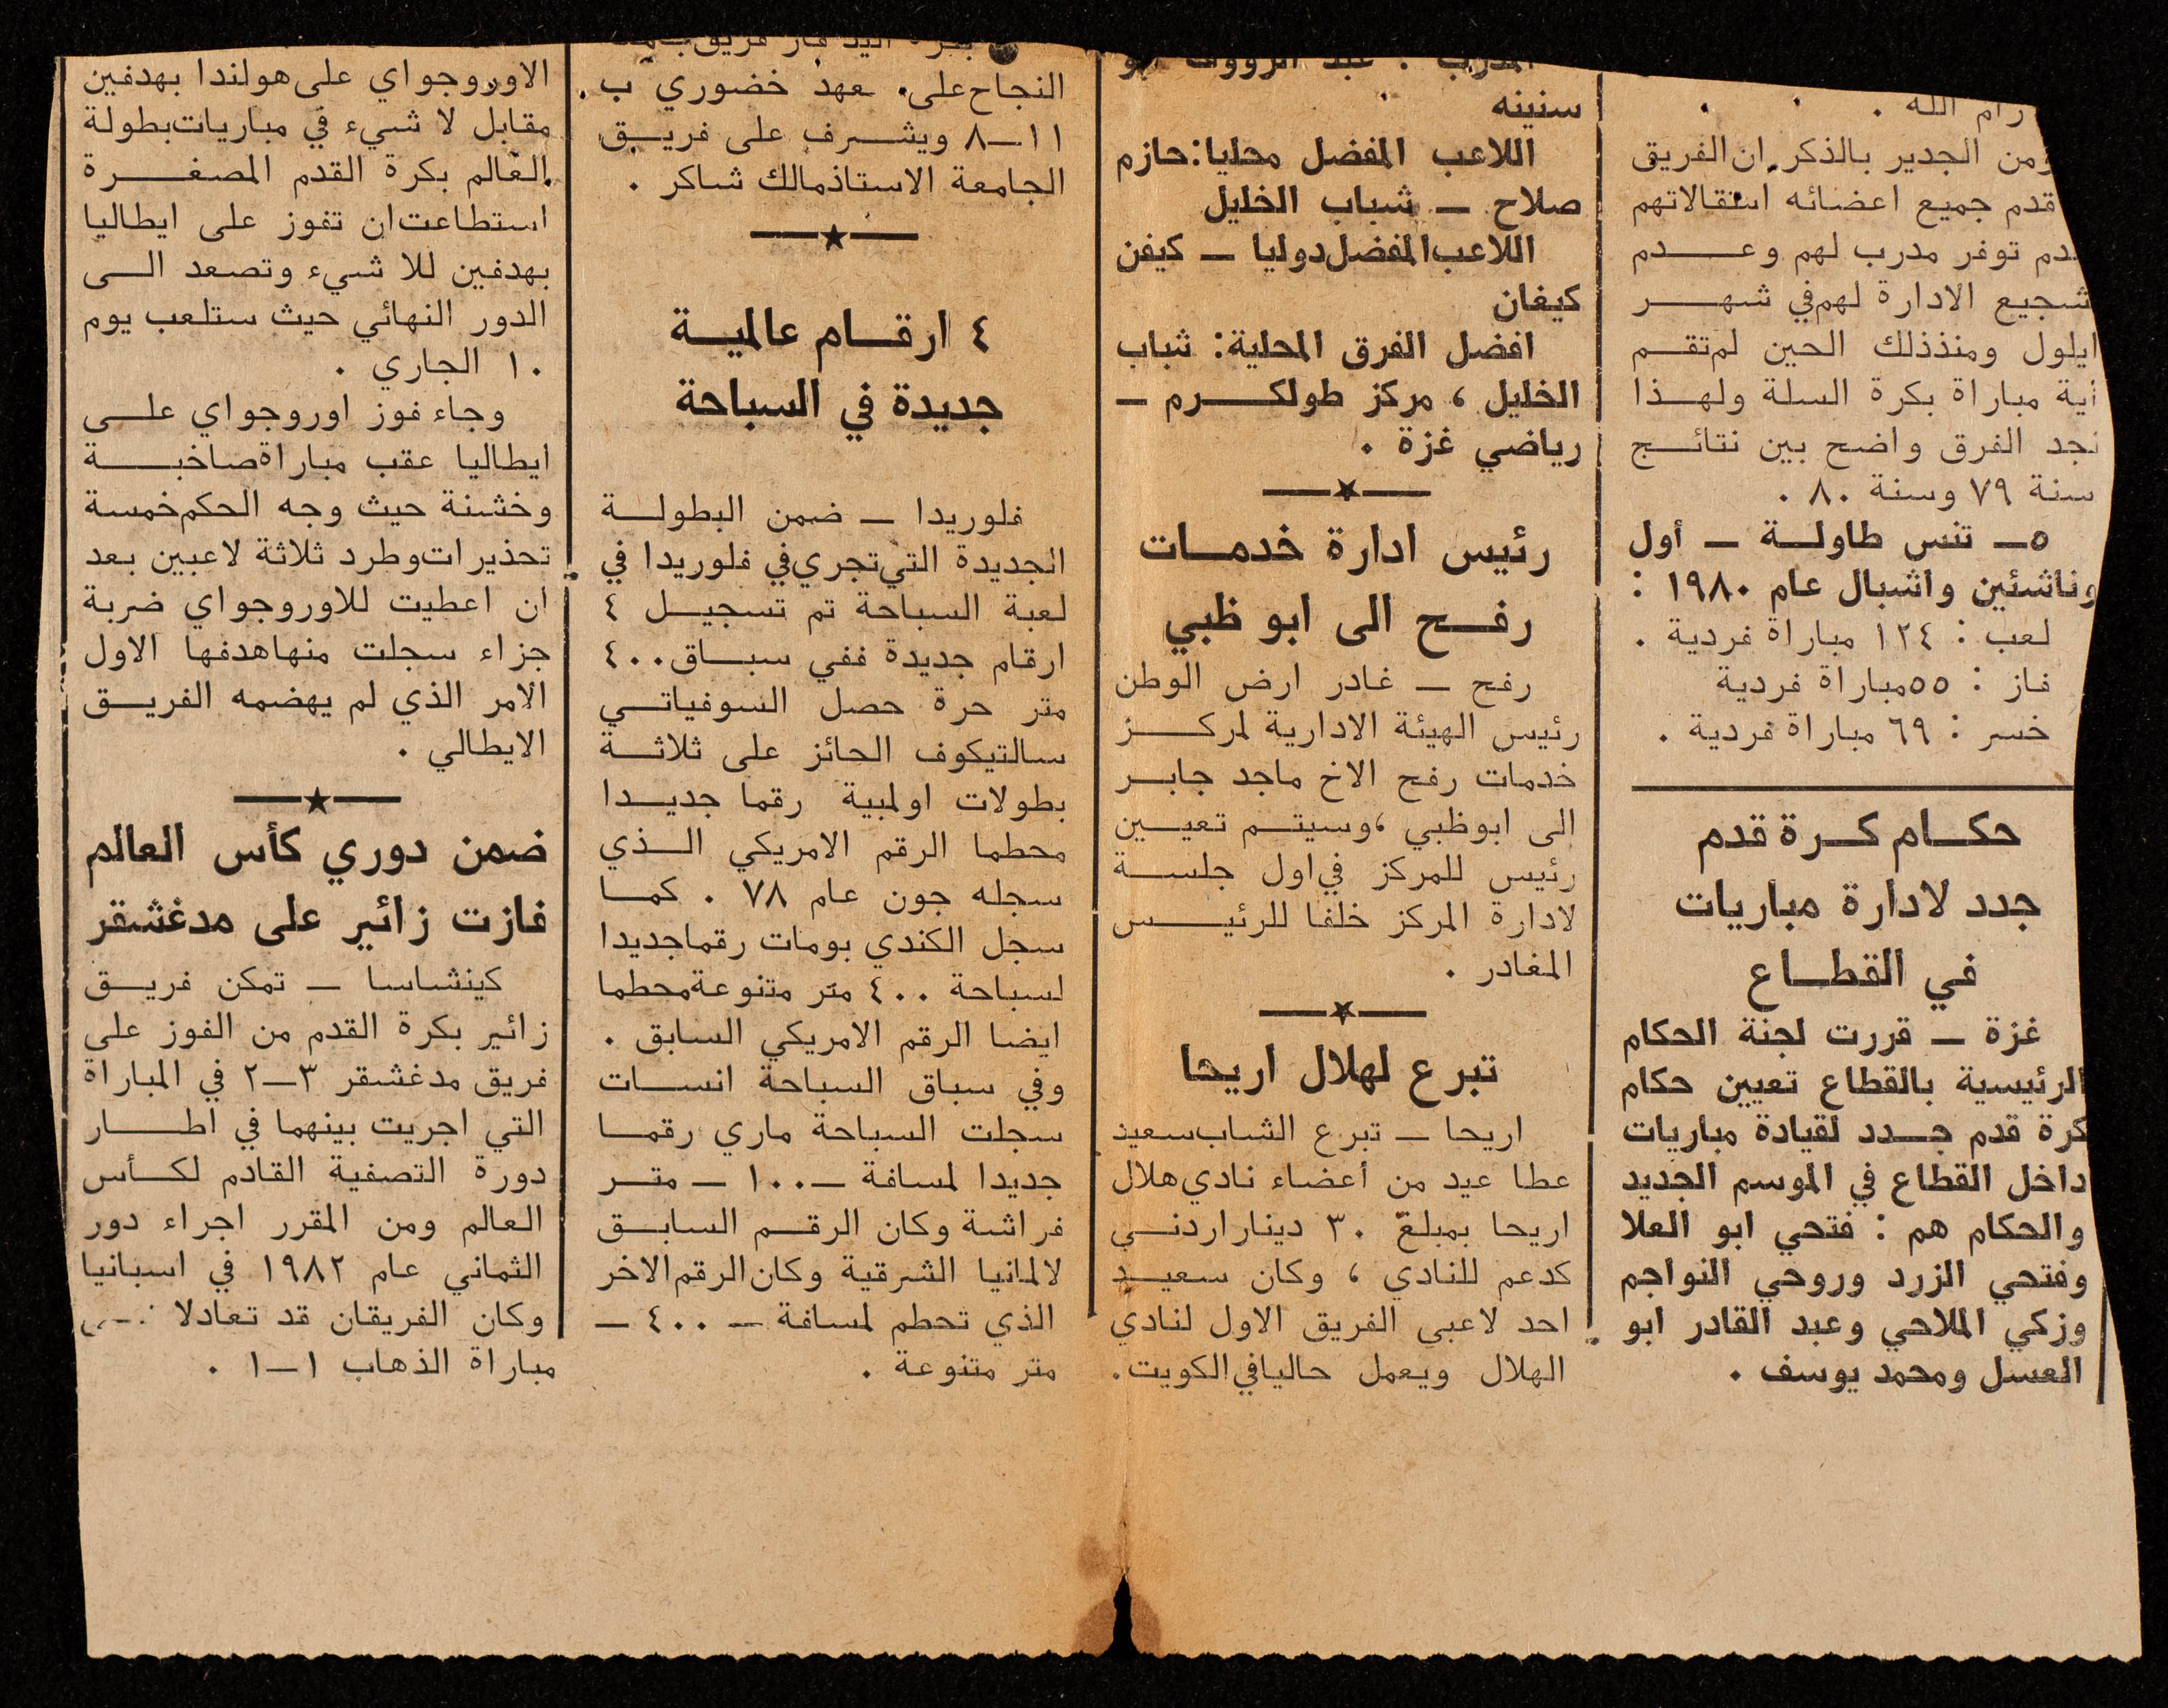 رام الله .
ومن الجدير بالذكر ان الفريق
قدم جميع اعضائه استقالاتهم
توفر مدرب لهم وعدم
الادارة لهم في شهر
ايلول ومنذ ذلك الحين لم تقم
أية مباراة بكرة السلة ولهذا
نجد الفرق واضح بين نتائج
سنة ٧٩ وسنة ٨٠ .
٥ـ تنس طاولة ـ أول
وناشئين واشبال عام ١٩٨٠ :
لعب : ١٢٤ مباراة فردية .
فاز : ٥٥ مباراة فردية
خسر : ٦٩ مباراة فردية .
حكام كرة قدم
جدد لادارة مباريات
في القطاع
غزة ـ قررت لجنة الحكام
الرئيسية بالقطاع تعيين حكام
كرة قدم جدد لقيادة مباريات
داخل القطاع في الموسم الجديد
والحكام هم : فتحي ابو العلا
وفتحي الزرد وروحي النواجم
وزكي الملاحي وعبد القادر ابو
العسل ومحمد يوسف .
المدرب : عبد الرؤوف ابو
سنينه
اللاعب المفضل محليا: حازم
صلاح ـ شباب الخليل
اللاعب المفضل دوليا ـ كيفن
كيغان
افضل الفرق المحلية: شباب
الخليل ، مركز طولكرم ـ
رياضي غزة .
رئيس ادارة خدمات
رفح الى ابو ظبي
رفح ـ غادر ارض الوطن
رئيس الهيئة الادارية لمركز
خدمات رفح الاخ ماجد جابر
الى ابوظبي ، وسيتم تعيين
رئيس للمركز في اول جلسة
لادارة المركز خلفا للرئيس
المغادر .
تبرع لهلال اريحا
اريحا ـ تبرع الشاب سعيد
عطا عيد من أعضاء نادي هلال
اريحا بمبلغ ٣٠ دينار اردني
كدعم للنادي ، وكان سعيد
احد لاعبي الفريق الاول لنادي
الهلال ويعمل حاليا في الكويت.
النجاح على معهد خضوري ب
١١ـ٨ ويشرف على فريق
الجامعة الاستاذ مالك شاكر .
٤ ارقام عالمية
جديدة في السباحة
فلوريدا ـ ضمن البطولة
الجديدة التي تجري في فلوريدا في
لعبة السباحة تم تسجيل ٤
ارقام جديدة ففي سباق ٤٠٠
متر حرة حصل السوفياتي
سالتيكوف الحائز على ثلاثة
بطولات اولمبية رقما جديدا
محطما الرقم الامريكي الذي
سجله جون عام ٧٨ . كما
سجل الكندي بومات رقما جديدا
لسباحة ٤٠٠ متر متنوعة محطما
ايضا الرقم الامريكي السابق .
وفي سباق السباحة انسات
سجلت السباحة ماري رقما
جديدا لمسافة ـ ١٠٠ ـ متر
فراشة وكان الرقم السابق
لالمانيا الشرقية وكان الرقم الاخر
الذي تحطم لمسافة ـ ٤٠٠ ـ
متر متنوعة .
الاوروجواي على هولندا بهدفين
مقابل لا شيء في مباريات بطولة
العالم بكرة القدم المصغرة
استطاعت ان تفوز على ايطاليا
بهدفين للا شيء وتصعد الى
الدور النهائي حيث ستلعب يوم
١٠ الجاري .
وجاء فوز اوروجواي على
ايطاليا عقب مباراة صاخبة
وخشنة حيث وجه الحكم خمسة
تحذيرات وطرد ثلاثة لاعبين بعد
ان اعطيت للاوروجواي ضربة
جزاء سجلت منها هدفها الاول
الامر الذي لم يهضمه الفريق
الايطالي .
ضمن دوري كأس العالم
فازت زائير على مدغشقر
كينشاسا ـ تمكن فريق
زائير بكرة القدم من الفوز على
فريق مدغشقر ٣ـ٢ في المباراة
التي اجريت بينهما في اطار
دورة التصفية القادم لكأس
العالم ومن المقرر اجراء دور
الثماني عام ١٩٨٢ في اسبانيا
وكان الفريقان قد تعادلا
مباراة الذهاب ١ـ١ .